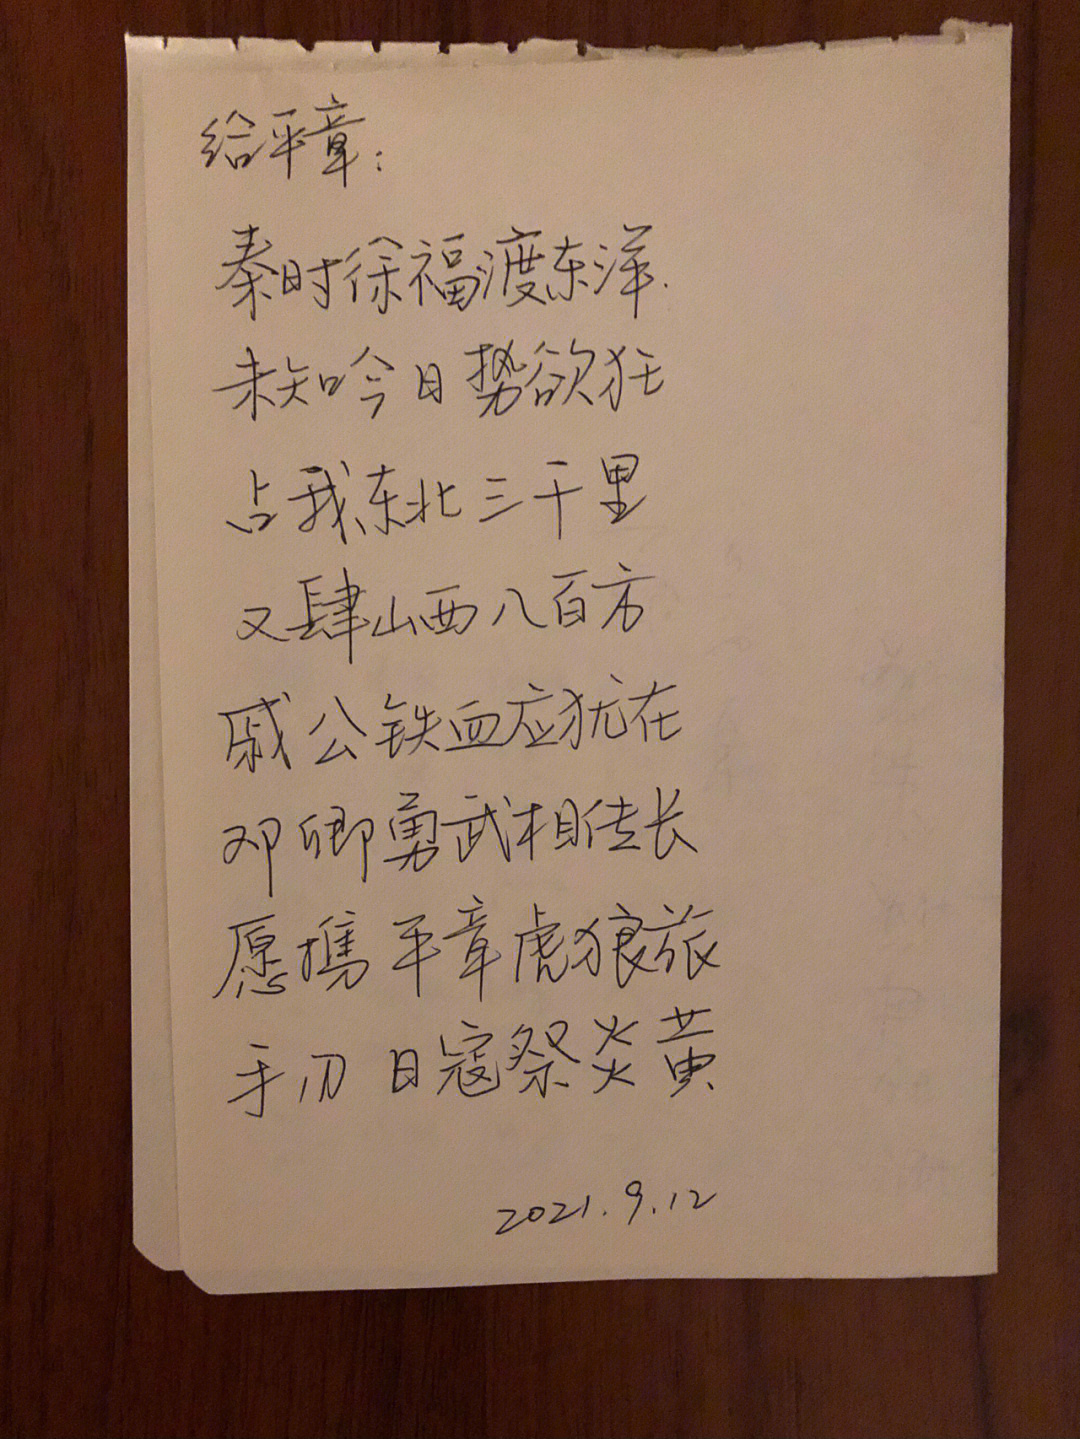 给平章：
秦时徐福渡东洋.
未知今日势欲狂
占我东北三千里
又肆山西八百方
戚公铁血应犹在
邓卿勇武相传长
愿携平章虎狼旅
手刃日寇祭炎黄
2021.9.12